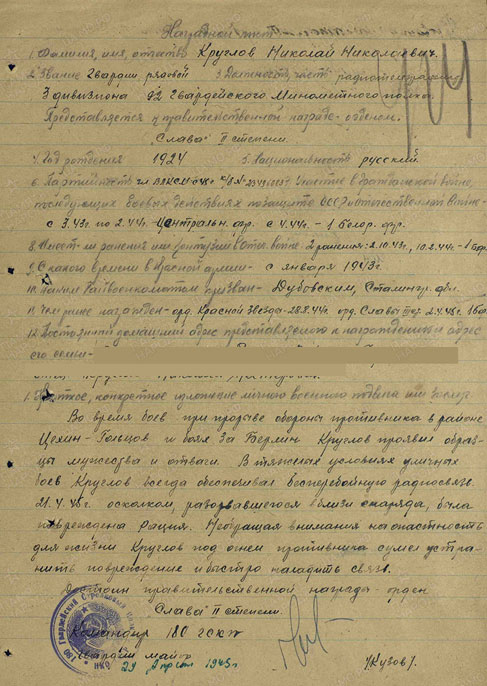 Наградной лист
1. Фамилия, имя, отчество Круглов Николай Николаевич
2. Звание гвардии рядовой 3. Должность, часть радиотелеграфист
3 дивизиона 92 гвардейского Минометного полка
Представляется к правительственной награде - орденом
"Слава" II степени
4. Год рождения 1924 5. Национальность русский
6. Партийность чл. ВЛКСМ Участие в гражданской войне,
последующих боевых действиях по защите СССР и отечественной войне -
с 3.43г по 2.44г - Центральн. фр. с 4.44г - 1 белор. фр.
8. Имеет ли ранения или контузии в Отеч. войне - 2 ранения: 2.10.43г, 10.2.44г - 1 бор
9. С какого времени в Красной армии - с января 1943г.
10. Каким Райвоенкоматом призван - Дубовским, Сталингр. обл.
11. Чем ранее награжден - орд. Красной Звезда - орд. Слава III ст. 2.4.45г.
12. Постоянный домашний адрес представляемого к награждению и адрес
его семьи -
Краткое, конкретное изложение личного военного подвига или заслуг
Во время боев при прорыве обороны противника в районе
Цехин - Гольцов и боях за Берлин Круглов проявил образ-
цы мужества и отваги. В тяжелых условиях уличных
боев Круглов всегда обеспечивал бесперебойную радиосвязь.
21.4.45г. осколком, разорвавшегося вблизи снаряда, была
повреждена рация. Необращая внимания на опасность
для жизни Круглов под огнем противника сумел устра-
нить повреждение и быстро наладить связь.
Достоин правительственной награды орден
"Слава" II степени.
Командир 180 гскп
гвардии майор
29 Апреля 1945г /Кузов/.
180 Гвардейский Стрелковый
НКО